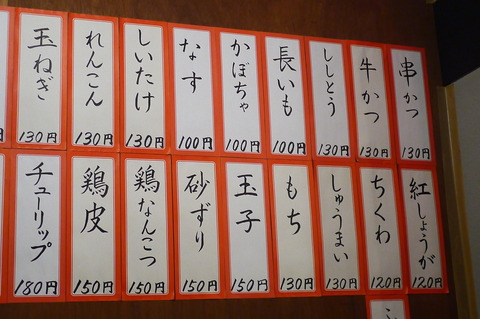 串かつ
130円
牛かつ
130円
ししとう
130円
長いも
100円
かぼちゃ
100円
なす
100円
しいたけ
130円
れんこん
130円
玉ねぎ
130円
紅しょうが
120円
ちくわ
120円
しゅうまい
130円
もち
130円
玉子
150円
砂ずり
150円
鶏なんこつ
150円
鶏皮
150円
チューリップ
180円